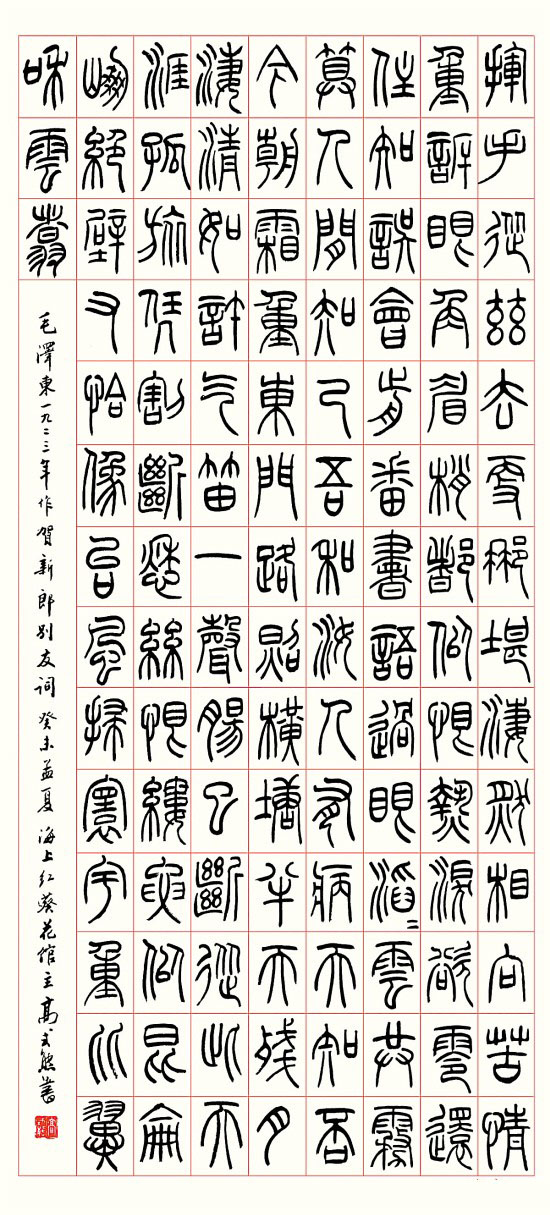 揮手從茲去更那堪淒然相向苦情
重訴眼角眉梢都似恨熱淚欲零還
住知誤會前番書語過眼滔〻雲共霧
算人間知己吾和汝人有病天知否
今朝霜重東門路照橫塘半天殘月
淒清如許气笛一聲腸已斷從此天
涯孤旅凭割斷愁絲恨縷要似昆侖
崩絕壁又恰像台風掃寰宇重比翼
和雲翥
毛澤東一九二三年作賀新郎別友詞 癸未孟夏 海上紅葵花館主高式熊書